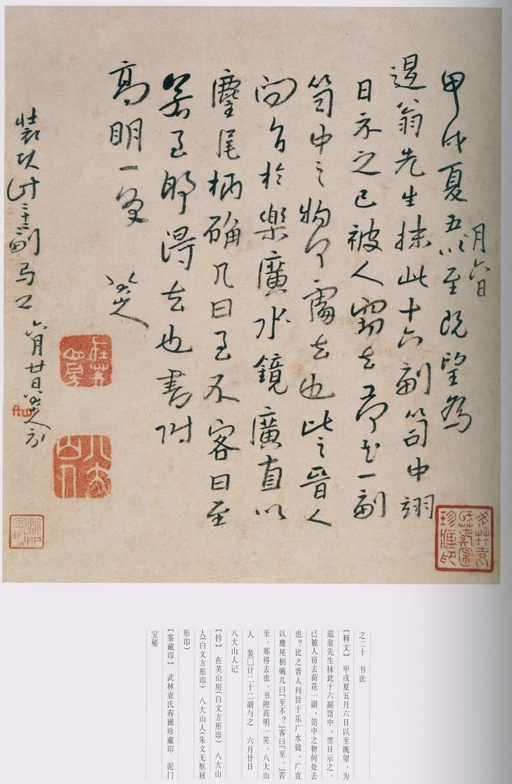 甲戌夏五月六日以至既望為
退翁先生抹此十六副笥中翌
日示之已被人竊去荷花一副
笥中之物何處去也比之晉人
問旨於樂廣水鏡廣直以
麈尾柄确几曰至不客曰至
若至那得去也書附
高明一笑 八大山人
六月廿日八大山人記
之二十 书法
【释文】 甲戌夏五月六日以至既望、为
退翁先生抹此十六副笥中,翌日示之、
已被人窃去荷花一副,笥中之物何处去
也?比之晋人问旨于乐广水镜,广直
以麈尾柄确几曰『至不?』客曰『至。』若
至,那得去也,书附高明一笑。八大山
人 装□计二十二副与之 六月廿日
八大山人记
【钤】 在芙山房(白文方形印) 八大山
人(白文方形印) 八大山人(朱文无框屐
形印)
【鉴藏印】 武林袁氏春圃珍藏印 泥门
宝秘